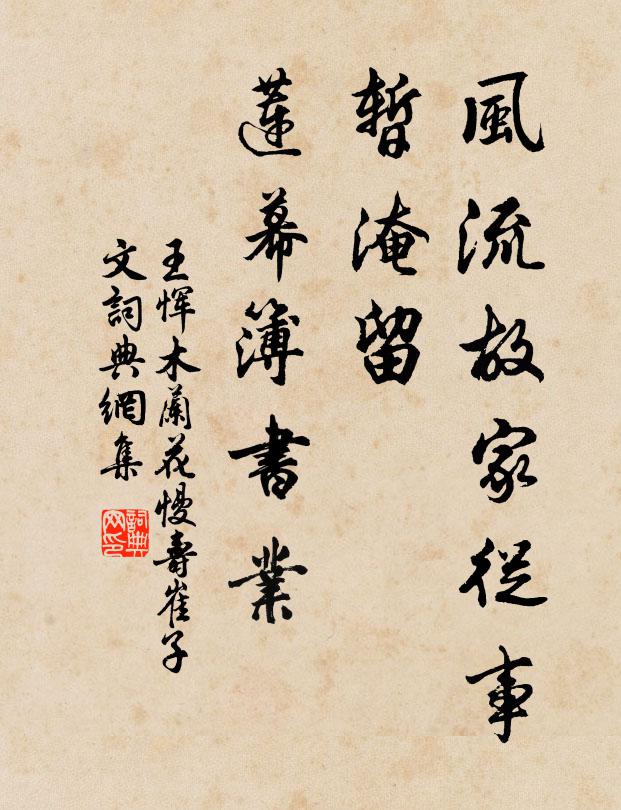 風流故家從事
暫淹留
蓮幕簿書業
王惲木蘭花慢壽崔子
文詞典網集
詞典
网印